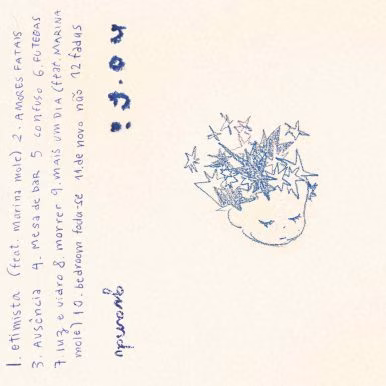 1. etimista (feat. marina mole) 2. AMORES FATAIS
3. AUSÊNCIA 4. Mesa de bar 5 confuso 6. FUTEBAS
7. luz e vidro 8. morrer 9. mais um dia (feat. MARINA
mole) 10. bedroom foda-se 11. de novo não 12 fadas